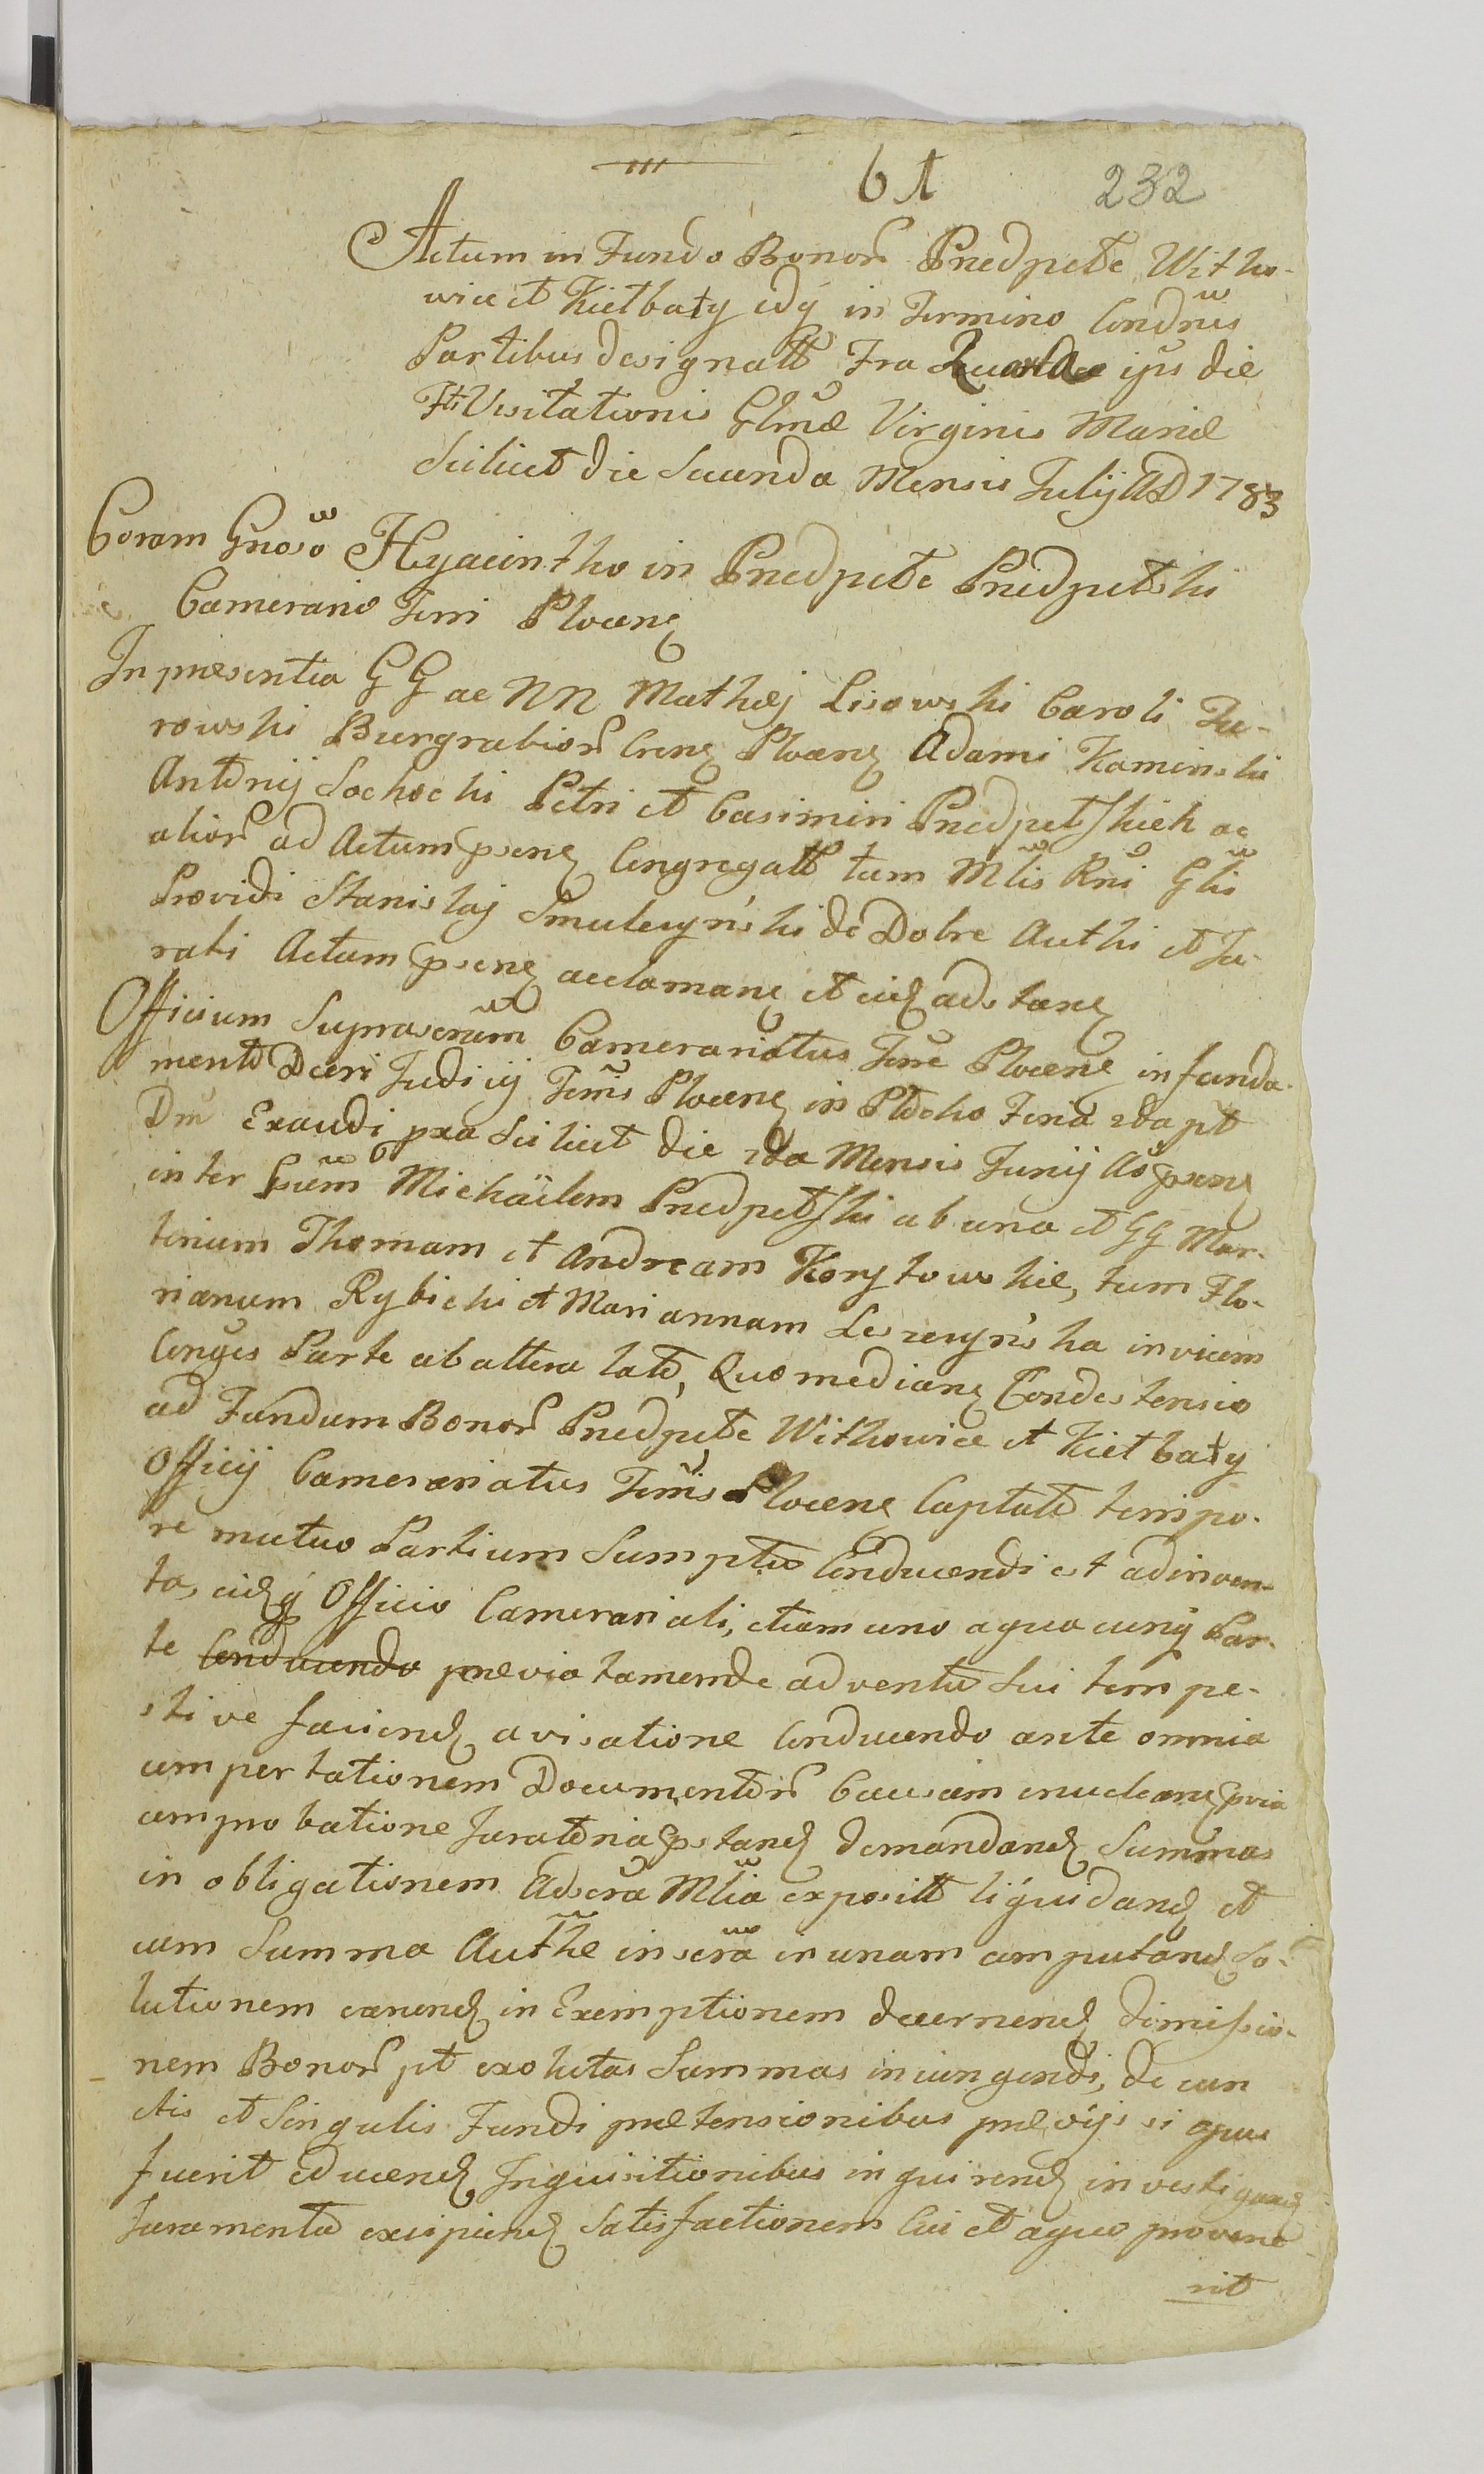 61 232
Actum in Fundo Bonoru Pnedpełe Witko-
wice et Kiełbały idq in Termino Condnis
Partibus designatt Fra Quarta ips die
Fti Visitationis Glmæ Virginis Mariæ
Scilicet die Secunda Mensis Julij AD 1783
Coram Gnoso Hyacintho in Pnedpełe Pnedpełski
Camerario Terri Plocen
In præsentia GG ac NN Mathej Lisowski Caroli Tu-
rowski Burgrabior Cren Plocen Adami Kaminski
Antonij Sochocki Petri et Casimiri Pnedpełskich ac
alior ad Actum psen Congregatt tam Mlis Rni Glis
Providi Stanislaj Smuleyński de Dobre Authi et Ju-
rati Actum psen acclaman et eid adstan
Officium Suprascrum Camerariatus Terræ Plocen in funda-
mento Dceri Judicij Terris Plocen in Płocko Feria 2da pt
Dm Exaudi pxa Scilicet die 2da Mensis Junij Ao psen
inter Gsum Michäelem Pnedpełski ab una et GG Mar-
tinum Thomam et Andream Korytowskie, tum Flo-
rianum Rybicki et Mariannam Leszczyńska invicem
Conges Parte ab altera lato, Quo median Condestensio
ad Fundum Bonor Pnedpełe Witkowice et Kiełbały
Officij Camerariatus Terris Plocen Captato tempo-
re mutuo Partium Sumptu Conducendi est adinven-
ta, eidq Officio Camerariali, etiam uno a qua cunq Par-
te Conducendo prævia tamen de adventu Sui tempe-
stive faciend avisatione Conducendo ante omnia
comportationem Documentor Causam enuclean pvia
comprobatione Juratoria pstand demandand Summas
in obligationem Adscra Mlia exposit liquidand et
cum Summa Authe inscra in unam computand So-
lutionem earend in Exemptionem decernend dimissio-
nem Bonor pt exolutas Summas iniungendi, de cun
ctis et Singulis Fundi prætensionibus prævijs si opus
fuerit educend Inquisitionibus inquirend investigand
Juramenta excipiend Satisfactionem Cui et a quo provene
rit